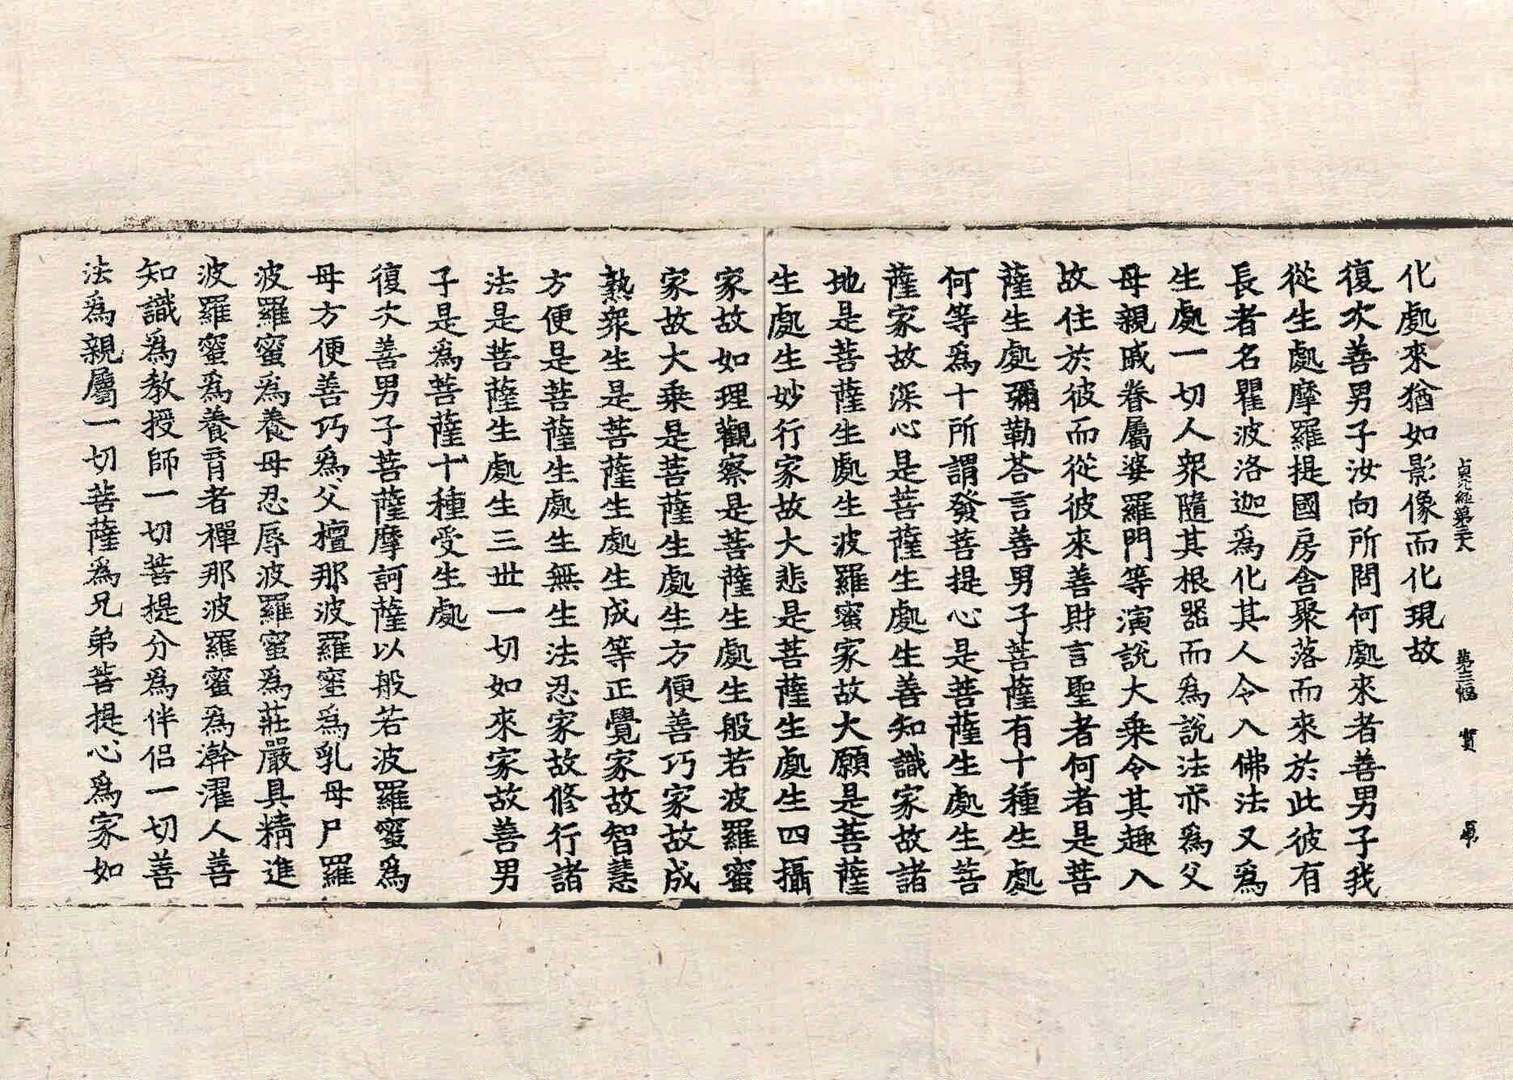 貞元經第三十八 第十三幅 賓 用
化處來猶如影像而化現故
復次善男子汝向所問何處來者善男子我
從生處摩羅提國房舍聚落而來於此彼有
長者名瞿波洛迦為化其人令入佛法又為
生處一切人眾隨其根器而為說法亦為父
母親戚眷屬婆羅門等演說大乘令其趣入
故住於彼而從彼來善財言聖者何者是菩
薩生處彌勒荅言善男子菩薩有十種生處
何等為十所謂發菩提心是菩薩生處生菩
薩家故深心是菩薩生處生善知識家故諸
地是菩薩生處生波羅蜜家故大願是菩薩
生處生妙行家故大悲是菩薩生處生四攝
家故如理觀察是菩薩生處生般若波羅蜜
家故大乘是菩薩生處生方便善巧家故成
熟眾生是菩薩生處生成等正覺家故智慧
方便是菩薩生處生無生法忍家故修行諸
法是菩薩生處生三世一切如來家故善男
子是為菩薩十種受生處
復次善男子菩薩摩訶薩以般若波羅蜜為
母方便善巧為父檀那波羅蜜為乳母尸羅
波羅蜜為養母忍辱波羅蜜為莊嚴具精進
波羅蜜為養育者禪那波羅蜜為澣濯人善
知識為教授師一切菩提分為伴侶一切善
法為親屬一切菩薩為兄弟菩提心為家如